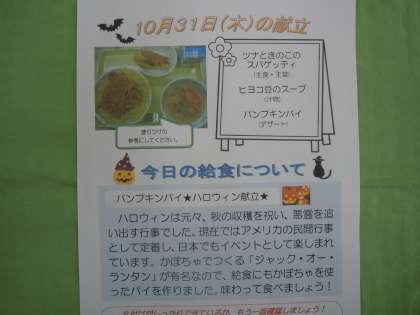 10月31日(木)の献立
ツナときのこの
スパゲッティ
(主食・主菜)
ヒヨコ豆のスープ
(汁物)
パンプキンパイ
(デザート)
盛りつけの
参考にしてください。
今日の給食について
パンプキンパイ★ハロウィン献立★
ハロウィンは元々、秋の収穫を祝い、悪霊を追
い出す行事でした。現在ではアメリカの民間行事
として定着し、日本でもイベントとして楽しまれ
ています。かぼちゃでつくる「ジャック・オー・
ランタン」が有名なので、給食にもかぼちゃを使っ
たパイを作りました。味わって食べましょう!
もう一度確認しましょう!